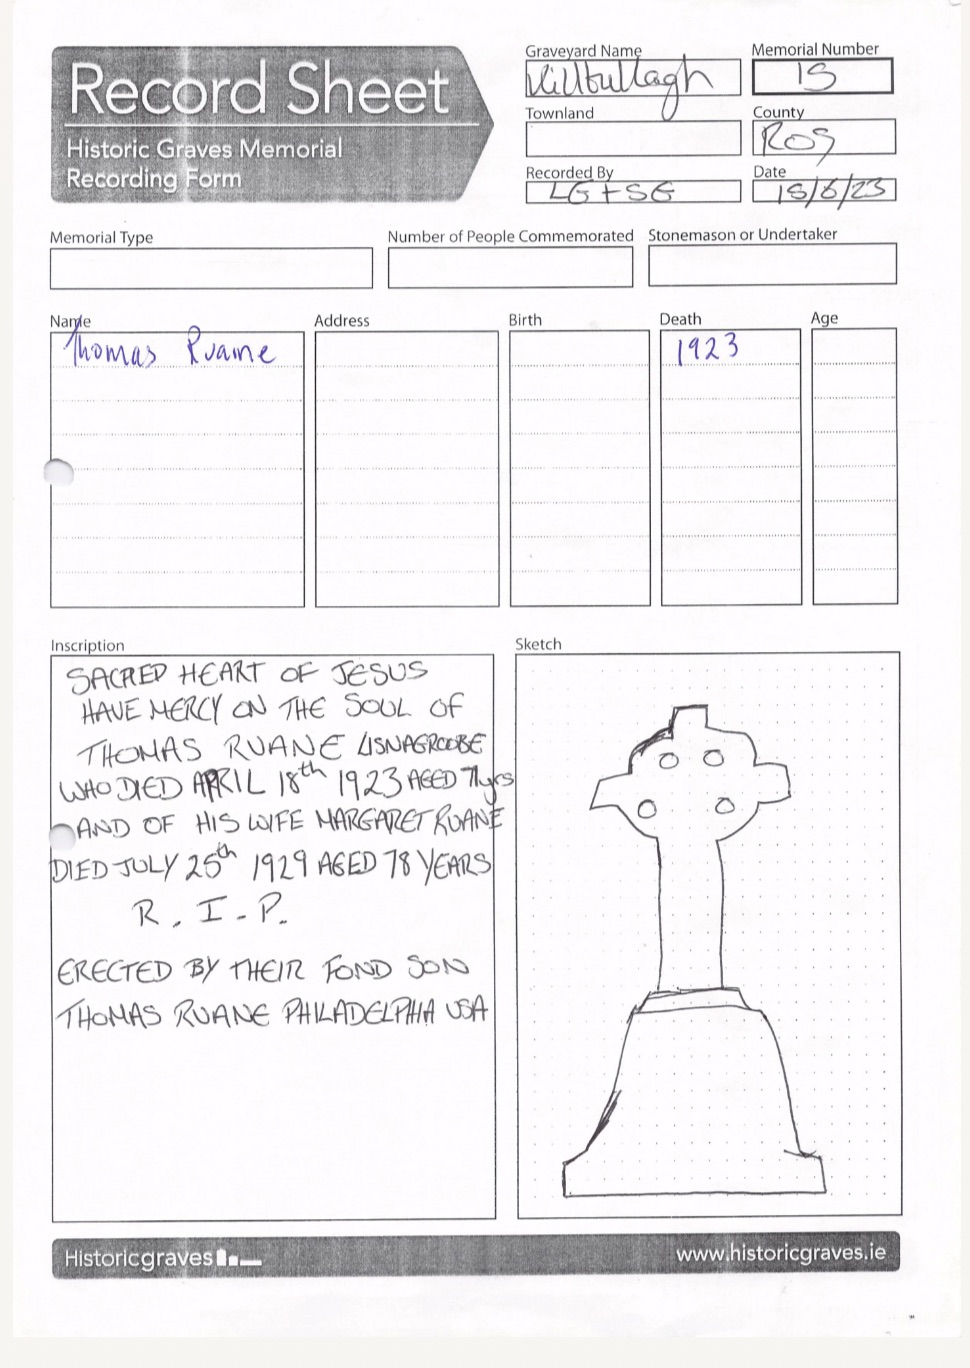 Record Sheet
Historic Graves Memorial
Recording Form
Graveyard Name
Killtullagh
Memorial Number
15
Townland
County
ROS
Recorded By
LG + SG
Date
15/6/23
Memorial Type
Number of People Commemorated
Stonemason or Undertaker
Name
Address
Birth
Death
Age
Thomas Ruane
1923
Inscription
SACRED HEART OF JESUS
HAVE MERCY ON THE SOUL OF
THOMAS RUANE LISNAGROOBE
WHO DIED APRIL 18th 1923 AGED 71yrs
AND OF HIS WIFE MARGARET RUANE
DIED JULY 25th 1929 AGED 78 YEARS
R. I. P.
ERECTED BY THEIR FOND SON
THOMAS RUANE PHILADELPHIA USA
Sketch
Historicgraves
www.historicgraves.ie